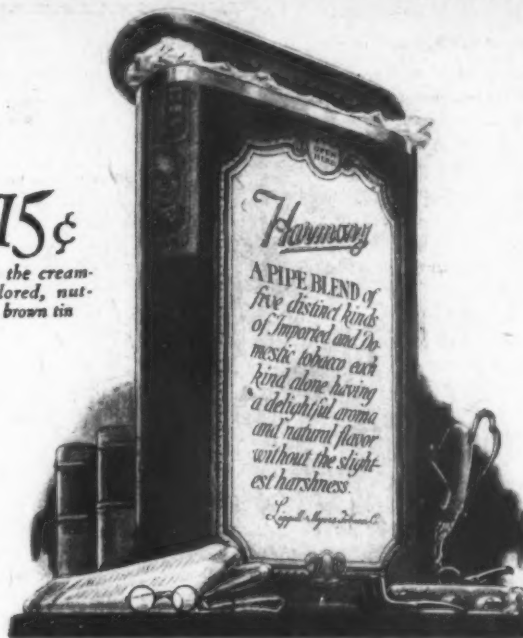 15¢
the cream-
lored, nut-
brown tin
OPEN
HERE
Harmony
A PIPE BLEND of
five distinct kinds
of Imported and Do-
mestic tobacco each
kind alone having
a delightful aroma
and natural flavor
without the slight-
est harshness.
Liggett & Myers Tobacco Co.